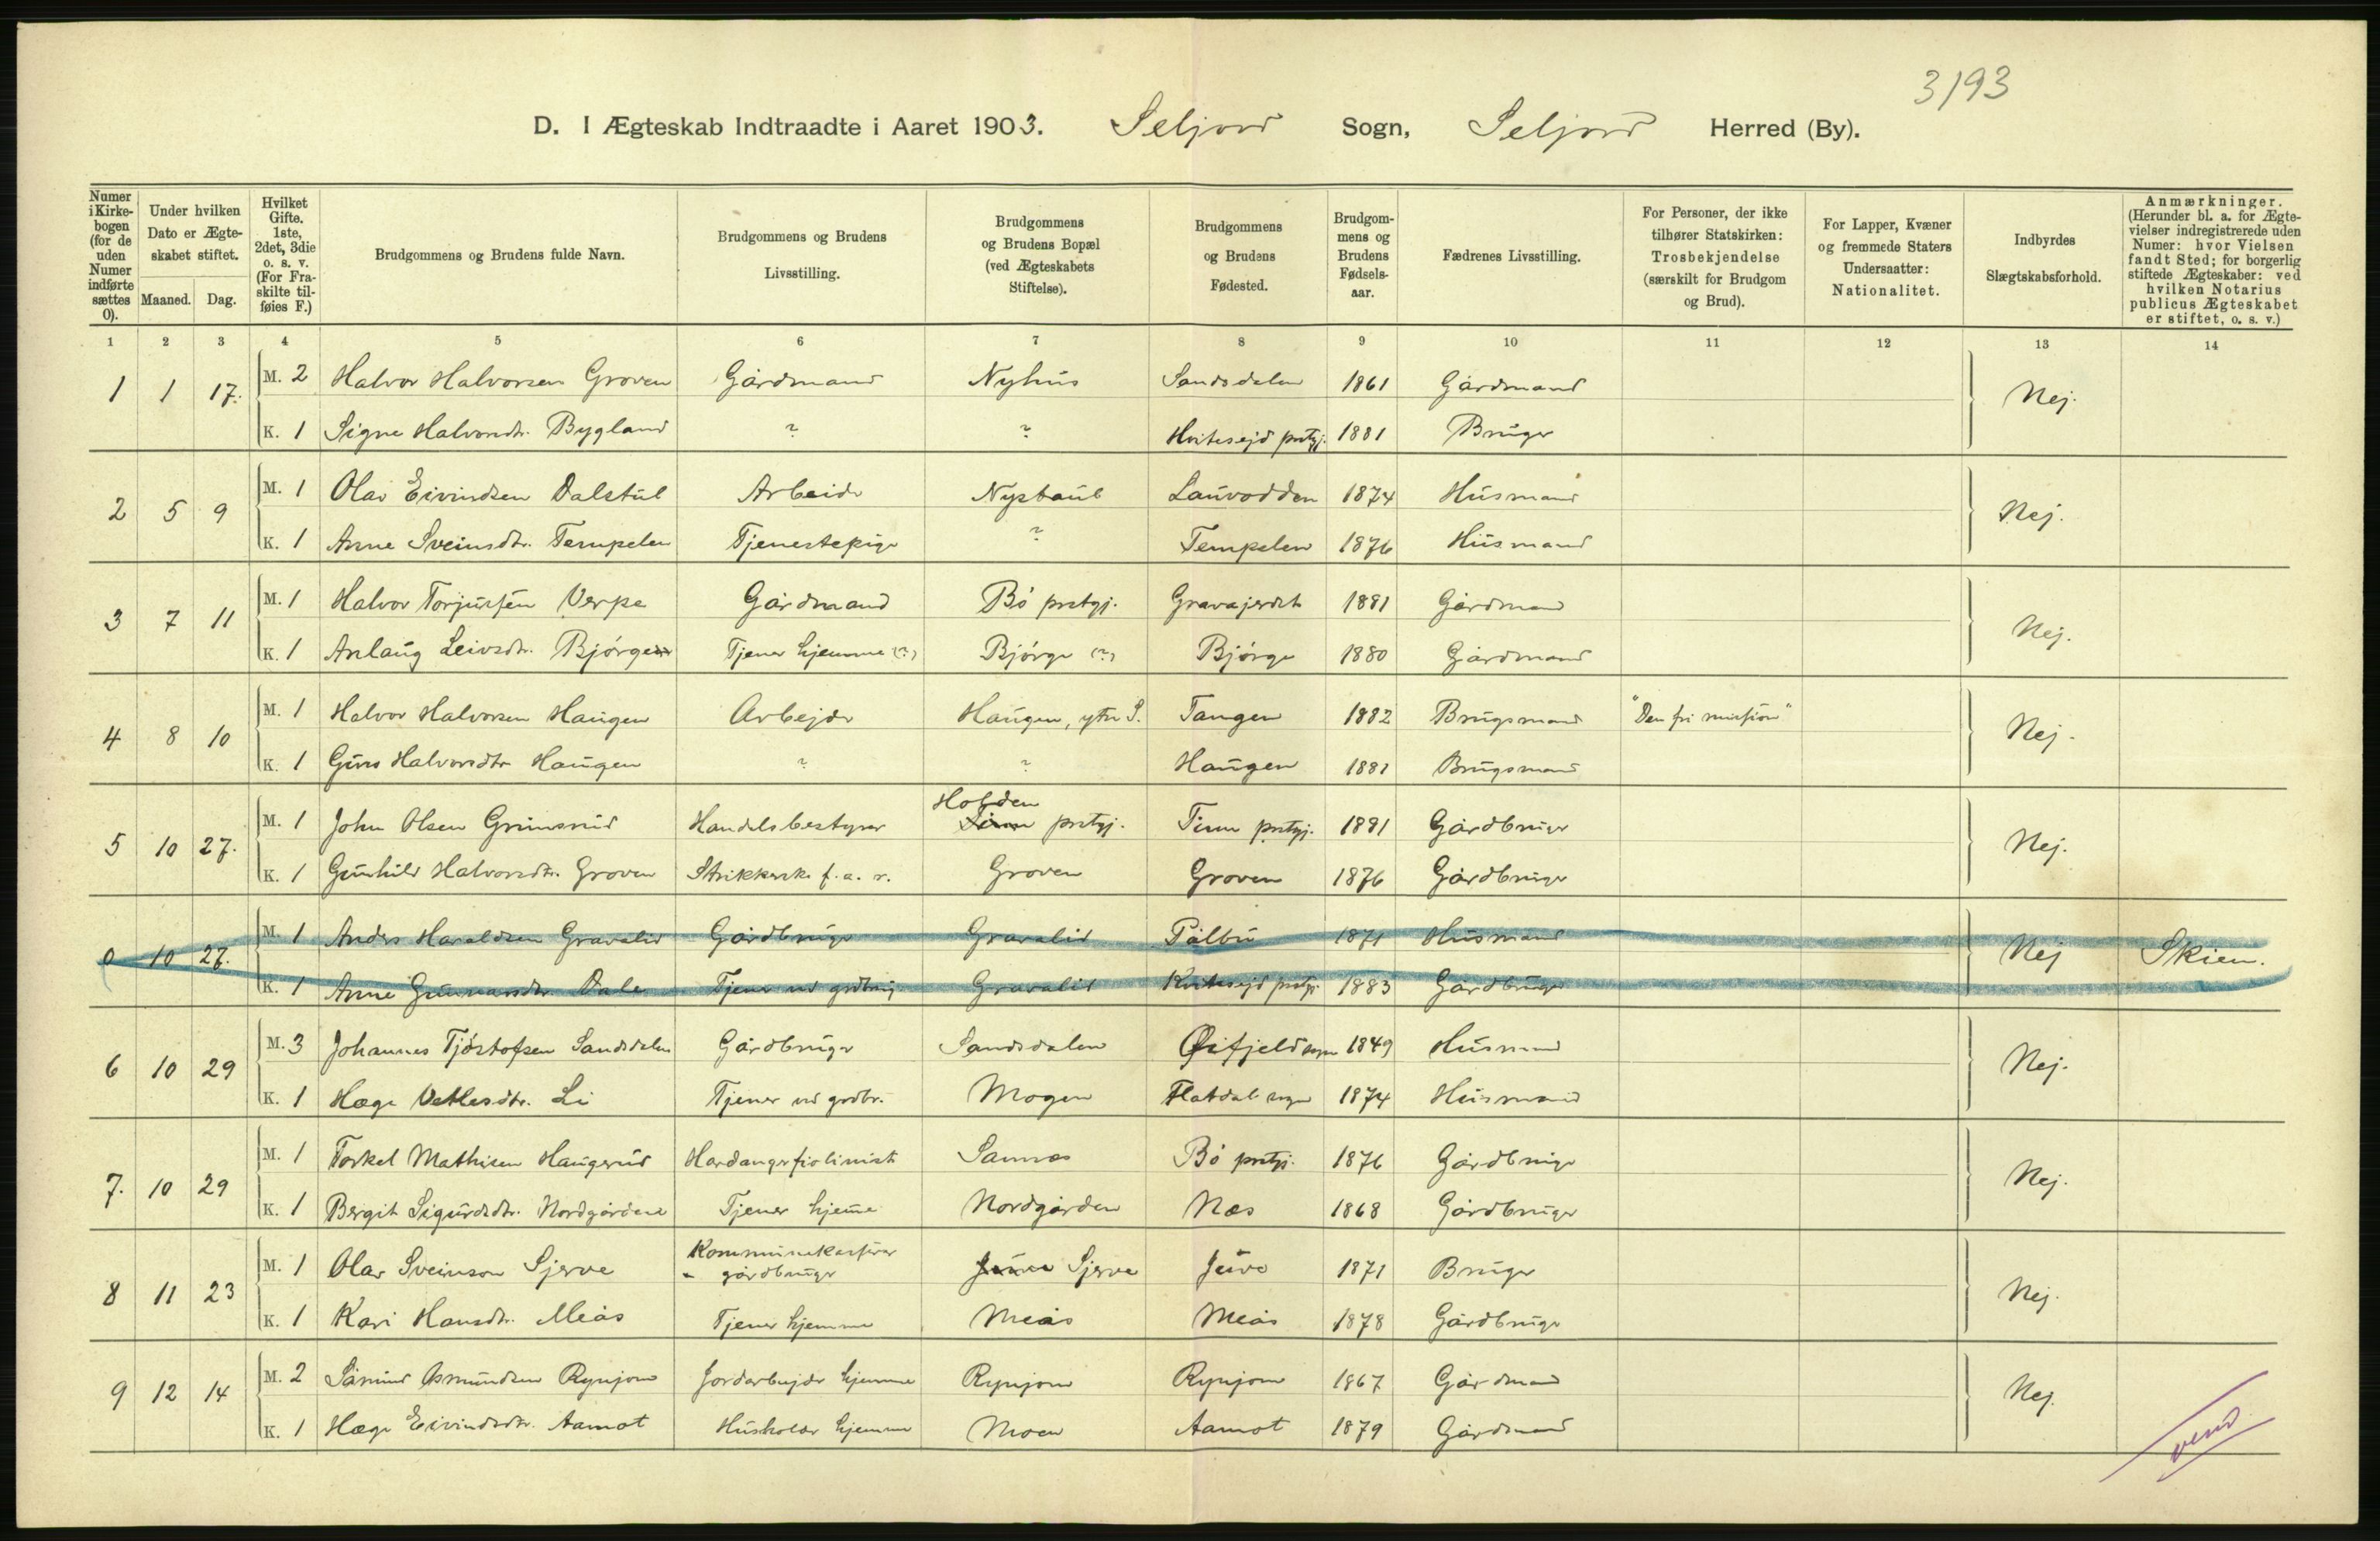 3193
D. I Ægteskab Indtraadte i Aaret 1903. Seljord Sogn, Seljord Herred (By).
Numer i Kirkebogen (for de uden Numer indførte sættes 0).
Under hvilken Dato er Ægteskabet stiftet.
Maaned. Dag.
Hvilket Gifte. 1ste, 2det, 3die o. s. v. (For Fraskilte tilføies F.)
Brudgommens og Brudens fulde Navn.
Brudgommens og Brudens Livsstilling.
Brudgommens og Brudens Bopæl (ved Ægteskabets Stiftelse).
Brudgommens og Brudens Fødested.
Brudgommens og Brudens Fødselsaar.
Fædrenes Livsstilling.
For Personer, der ikke tilhører Statskirken: Trosbekjendelse (særskilt for Brudgom og Brud).
For Lapper, Kvæner og fremmede Staters Undersaatter: Nationalitet.
Indbyrdes Slægtskabsforhold.
Anmærkninger. (Herunder bl. a. for Ægtevielser indregistrerede uden Numer: hvor Vielsen fandt Sted; for borgerlig stiftede Ægteskaber: ved hvilken Notarius publicus Ægteskabet er stiftet, o. s. v.)
1 2 3 4 5 6 7 8 9 10 11 12 13 14
1 1 17. M. 2 Halvor Halvorsen Groven Gårdmand Nyhus Sandsdalen 1861 Gårdmand Nej.
K. 1 Signe Halvorsdtr. Bygland ? ? Hvitesejd prstgj. 1881 Bruger
2 5 9 M. 1 Olav Eivindsen Dalstul Arbeider Nystaul Lauvodden 1874 Husmand Nej.
K. 1 Anne Sveinsdtr. Tempelen Tjenestepige ? Tempelen 1876 Husmand
3 7 11 M. 1 Halvor Torjussen Verpe Gårdmand Bö prstgj. Gravajerdet 1881 Gårdmand Nej.
K. 1 Aslaug Leivsdtr. Bjørge Tjener hjemme (?) Bjørge (?) Bjørge 1880 Gårdmand
4 8 10 M. 1 Halvor Halvorsen Haugen Arbejder Haugen, ytre S. Tangen 1882 Brugsmand "Den fri missjon" Nej.
K. 1 Guro Halvorsdtr Haugen ? ? Haugen 1881 Brugsmand
5 10 27. M. 1 John Olsen Grimsrud Handelsbestyrer Holden prstgj. Tinn prstgj. 1881 Gårdbruger Nej.
K. 1 Gunhild Halvorsdtr. Groven Strikkerske f. a. r. Groven Groven 1876 Gårdbruger
0 10 27. M. 1 Anders Haraldsen Gravalid Gårdbruger Gravalid Pålbu 1871 Husmand Nej Skien.
K. 1 Anne Gunnarsdtr. Dale Tjener ved grdbrug Gravalid Kvitesejd prstgj. 1883 Gårdbruger
6 10 29 M. 3 Johannes Tjöstofsen Sandsdalen Gårdbruger Sandsdalen Øifjeld sogn 1849 Husmand Nej.
K. 1 Hæge Vetlesdtr. Li Tjener ved grdbr. Mogen Flatdal sogn 1874 Husmand
7. 10 29 M. 1 Torkel Mathisen Haugerud Hardangerfiolinist Sannes Bö prstgj. 1876 Gårdbruger Nej.
K. 1 Bergit Sigurdsdtr. Nordgårdene Tjener hjemme Nordgården Næs 1868 Gårdbruger
8 11 23 M. 1 Olav Sveinson Sjerve Kommunekasserer - gårdbruger Sjerve Juve 1871 Bruger Nej.
K. 1 Kari Hansdtr. Meås Tjener hjemme Meås Meås 1878 Gårdbruger
9 12 14 M. 2 Såmund Asmundsen Rynjom Jordarbejder hjemme Rynjom Rynjom 1867 Gårdmand Nej.
K. 1 Hæge Eivindsdtr. Aamot Husholder hjemme Moen Aamot 1879 Gårdmand
vend